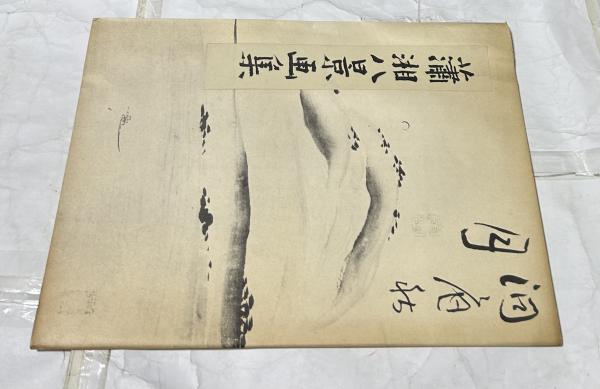 瀟湘八景画集
洞庭秋
月